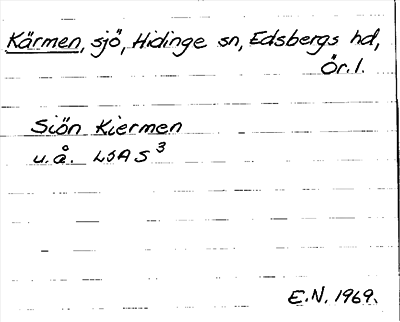 Kärmen, sjö, Hidinge sn, Edsbergs hd,
Ör.l.
Siön Kiermen
u.å. LSA S³
E.N. 1969.